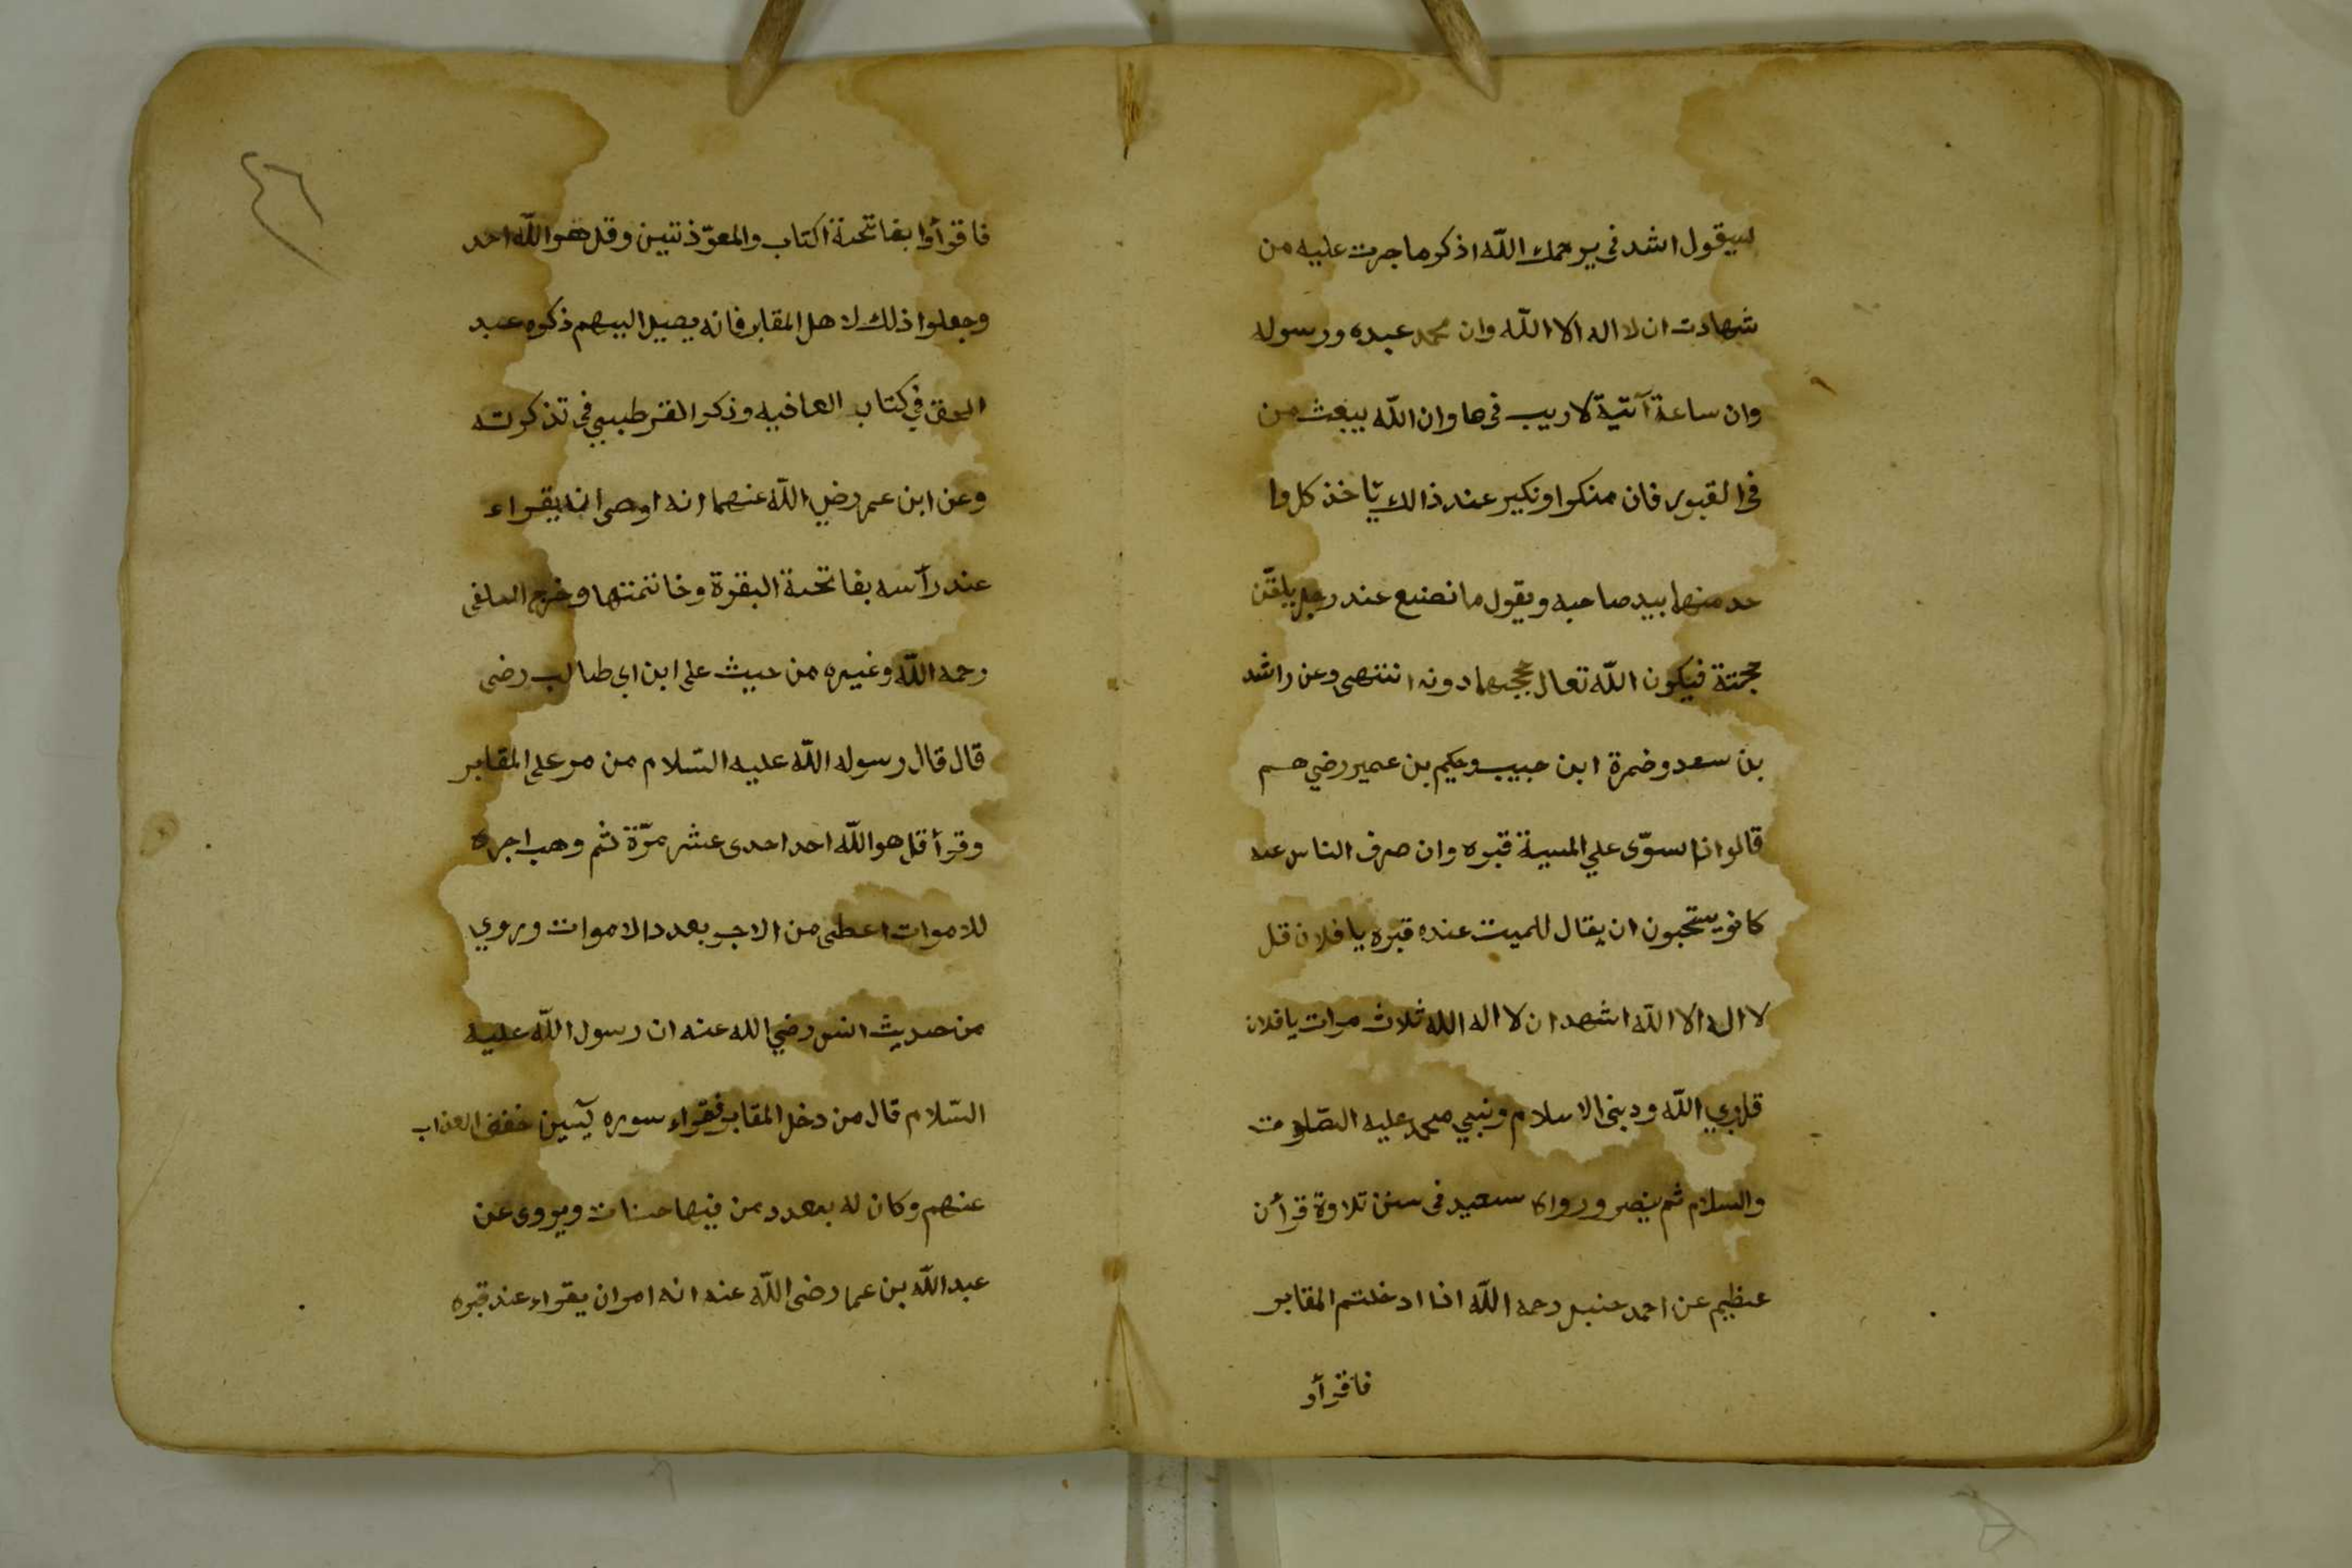 سيقول اشدنى يرحمك اللّه اذكر ما جرت عليه من
شهادت ان لا اله الا اللّه وان محمد عبده ورسوله
وان ساعة آتية لا ريب فى ها وان اللّه يبعث من
فى القبور فان منكرا ونكير عند ذالك ئاخذ كل وا
حد منهما بيد صاحبه ويقول ما نصنع عند رجل يلقّن
حجتة فيكون اللّه تعال حججهما دونه انتهى وعن راشد
بن سعد وضمرة ابن حبيب وحكيم بن عمير رضي هم
قالوا اذا سوّى علي الميية قبره وان صرف الناس عنه
كانو يستحبون ان يقال للميت عنده قبره يا فلان قل
لا اله الا اللّه اشهد ان لا اله الله ثلاث مرات يا فلان
قل ربي اللّه ودينى الاسلام ونبيي محمد عليه الصّلوت
والسلام ثم ينصر ورواه سعيد فى سنن تلاوة قرأن
عظيم عن احمد حنبل رحمه اللّه اذا ادخلتم المقابر
فاقرأو
٤٦
فاقرأوا بفاتحة اكتاب والمعوّذتين وقل هو اللّه احد
وجعلوا ذلك لاهل المقابر فانه يصيل اليهم ذكره عبد
الحق في كتاب العاقبه وذكر القرطبيي في تذكرته
وعن ابن عمر رضي اللّه عنهما انه اوصى انه يقراء
عند رأسه بفاتحة البقرة وخاتمتها وخرج السلفى
رحمه اللّه وغيره من حييث على ابن ابى طالب رضى
قال قال رسوله اللّه عليه السّلام من مر على المقابر
وقرأ قل هو اللّه احد احدى عشر مرّة ثم وهب اجره
للاموات اعطى من الاجر بعدد الاموات وروي
من حديث انس رضي الله عنه ان رسول اللّه عليه
السّلام قال من دخل المقابر فقراء سوره يٓسين خفف العذاب
عنهم وكان له بعدد من فيها حسنات ويروى عن
عبد اللّه بن عما رضى اللّه عنه انه امر ان يقراء عند قبره